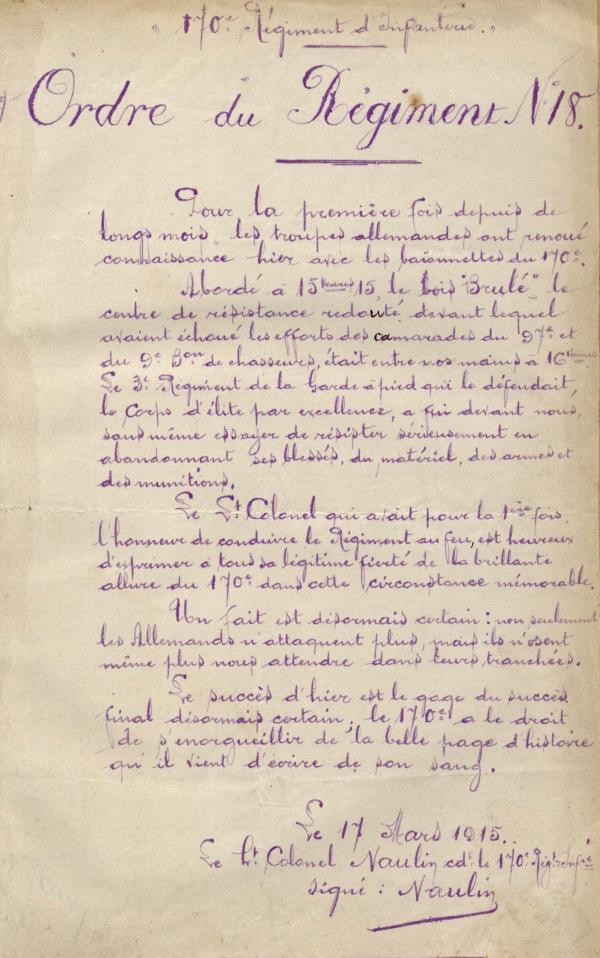 " 170e Régiment d'Infanterie. "
Ordre du Régiment N°18.
Pour la première fois depuis de
longs mois les troupes allemandes ont renoué
connaissance hier avec les baïonnettes du 170e.
Abordé à 15 heures 15, le bois "Brulé" le
centre de résistance redouté devant lequel
avaient échoué les efforts des camarades du 97e et
du 9e Bon de chasseurs, était entre nos mains à 16 heures
Le 3e Régiment de la Garde à pied qui le défendait,
le Corps d'élite par excellence, a fui devant nous,
sans même essayer de résister sérieusement en
abandonnant ses blessés, du matériel, des armes et
des munitions.
Le Lt Colonel qui avait pour la 1ère fois
l'honneur de conduire le Régiment au feu, est heureux
d'exprimer à tous sa légitime fierté de la brillante
allure du 170e dans cette circonstance mémorable.
Un fait est désormais certain : non seulement
les Allemands n'attaquent plus, mais ils n'osent
même plus nous attendre dans leurs tranchées.
Le succès d'hier est le gage du succès
final désormais certain, le 170e a le droit
de s'enorgueillir de la belle page d'histoire
qu'il vient d'écrire de son sang.
Le 17 Mars 1915.
Le Lt Colonel Naulin cdt le 170e Régt Infie
signé : Naulin